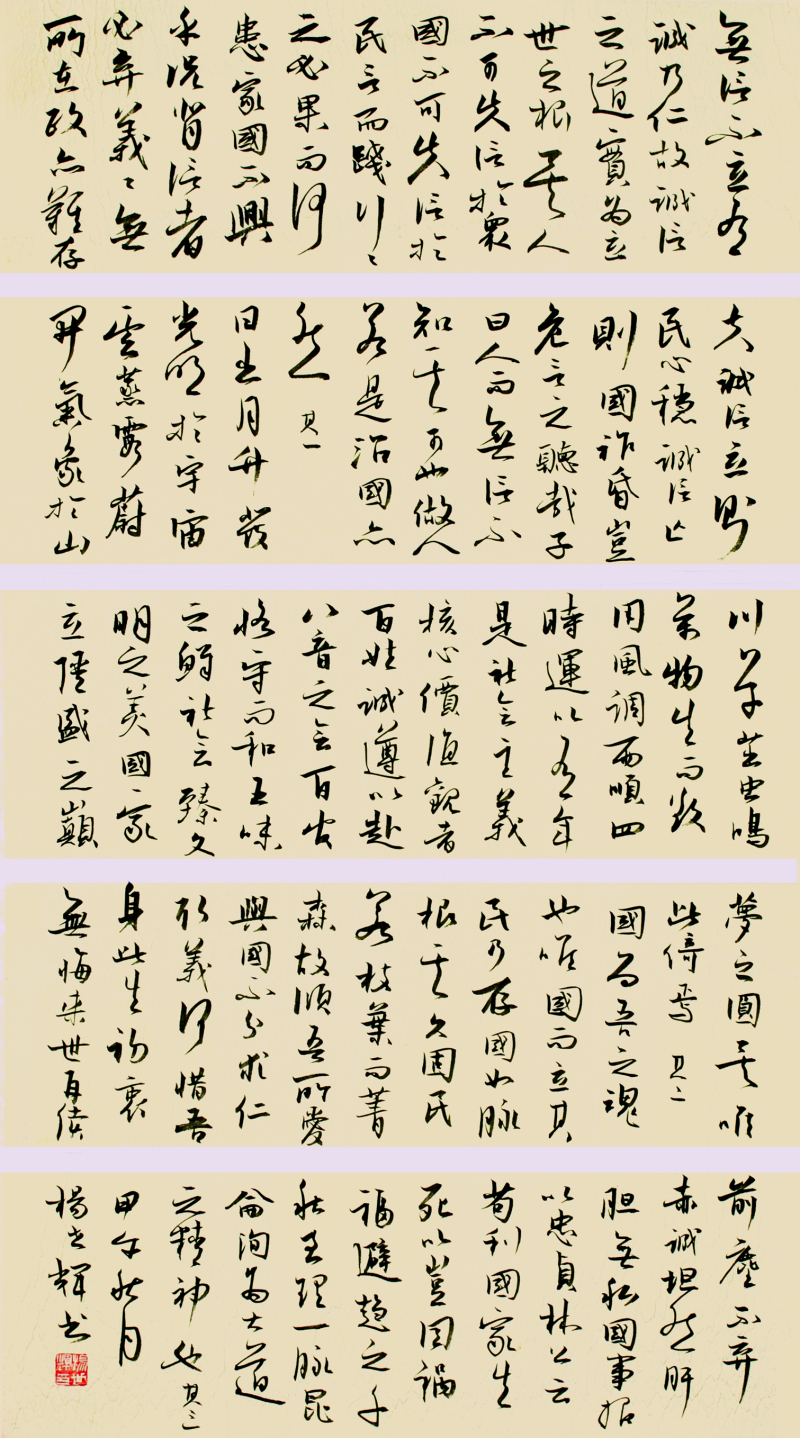 無信不立有
誠乃仁故誠信
之道實為立
世之根是人
不可失信於眾
國不可失信於
民言而踐行行
之必果而何
患家國不興
永從背信者
必棄義義無
所在政亦難存
夫誠信立則
民心穩誠信亡
則國祚昏豈
危言之聽哉子
曰人而無信不
知其可也做人
若是治國亦
然 其一
日出月升發
光明於宇宙
雲蒸霞蔚
開氣象於山
川草茁虫鳴
萬物生而致
用風調雨順四
時運以有年
是社會主義
核心價值觀者
百姓誠遵以赴
八音之會百官
恪守而和五味
之鮮社會臻文
明之美國家
立隆盛之巔
夢之圓是唯
此倚焉 其二
國為吾之魂
也唯國而立其
民乃存國如脉
根其久固民
若枝葉而菁
森故傾吾所愛
興國不分求仁
取義何惜吾
身此生初衷
無悔來世再續
前塵不棄
赤誠坦然肝
胆無私國事招
以忠貞林公云
苟利國家生
死以豈因禍
福避趨之千
秋至理一脉昆
侖洵為大道
之精神也 其三
甲午秋月
楊世輝書